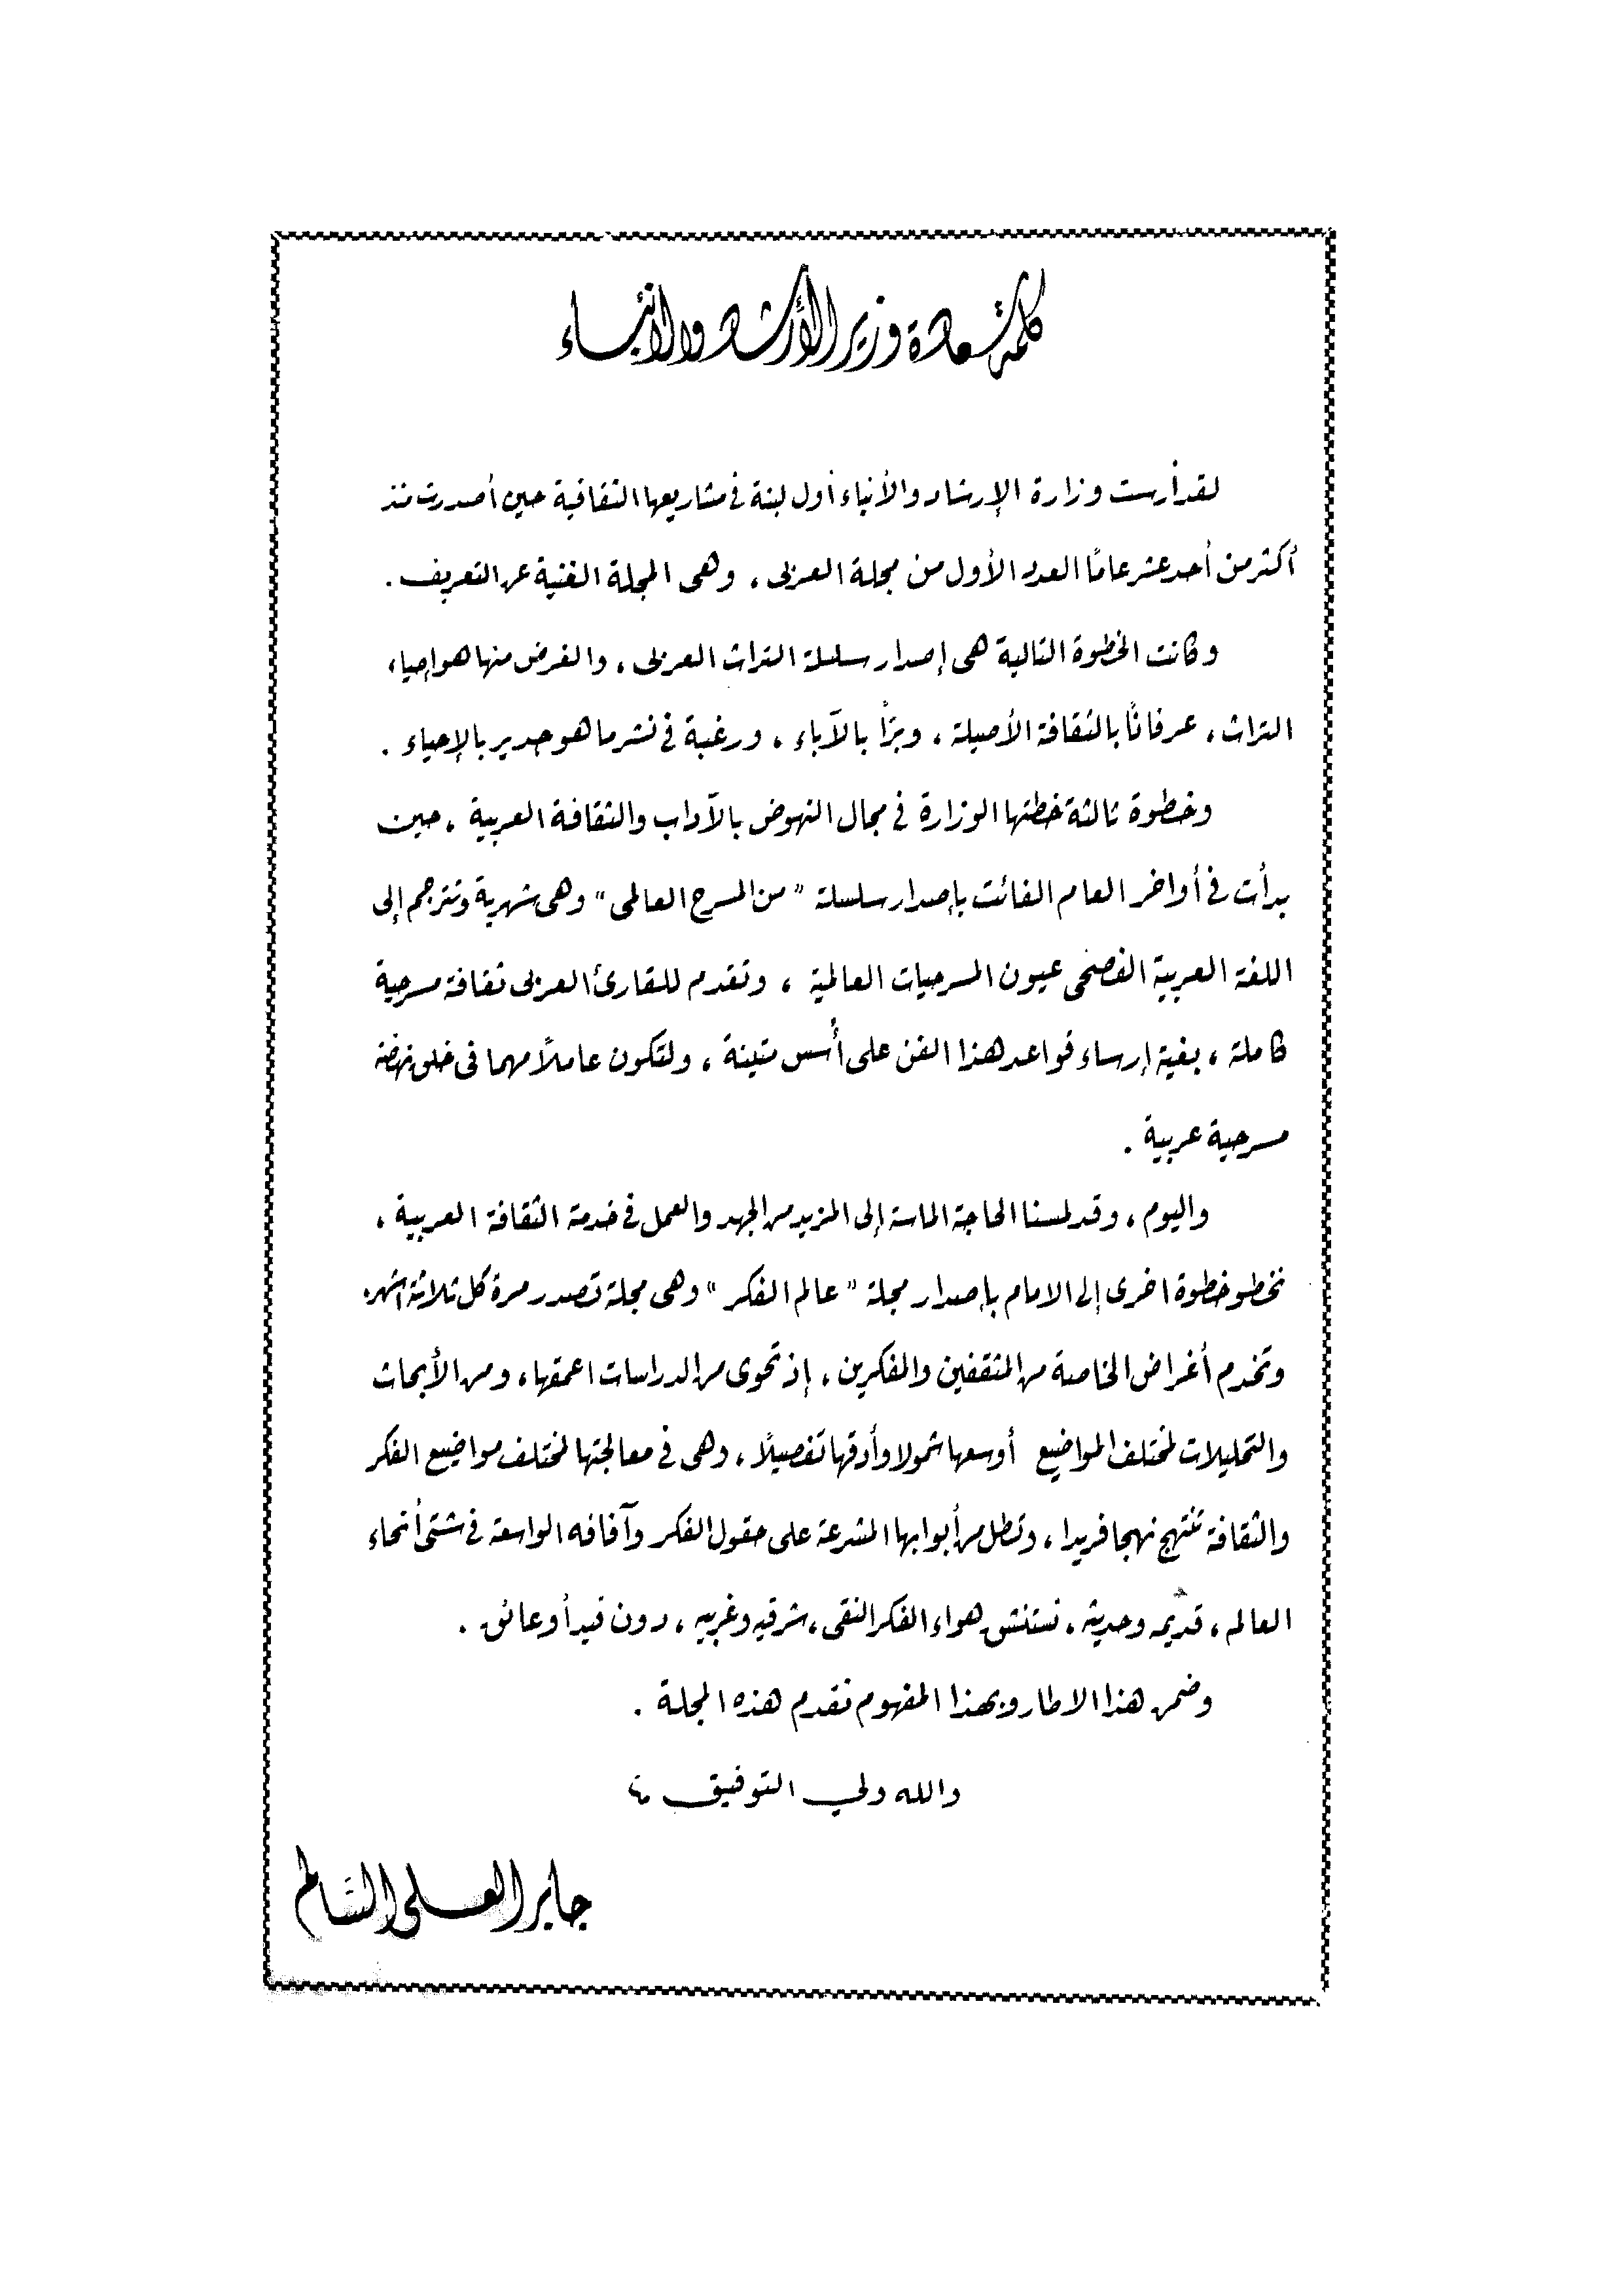 كلمة سعادة وزير الأرشاد والانباء
لقد أرست وزارة الإرشاد والأنباء أول لبنة في مشاريعها الثقافية حين أصدرت منذ
أكثر من أحد عشر عامًا العدد الأول من مجلة العربى ، وهى المجلة الغنية عن التعريف .
وكانت الخطوة التالية هى إصدار سلسلة التراث العربى ، والغرض منها هو إحياء
التراث ، عرفانًا بالثقافة الأصيلة ، وبرًّا بالآباء ، ورغبة في نشر ما هو جدير بالإحياء .
وخطوة ثالثة خطتها الوزارة في مجال النهوض بالآداب والثقافة العربية ، حين
بدأت في أواخر العام الفائت بإصدار سلسلة " من المسرح العالمى " وهى شهرية وتترجم إلى
اللغة العربية الفصحى عيون المسرحيات العالمية ، وتقدم للقارئ العربى ثقافة مسرحية
كاملة ، بغية إرساء قواعد هذا الفن على أُسس متينة ، ولتكون عاملاً مهما فى خلق نهضة
مسرحية عربية .
واليوم ، وقد لمسنا الحاجة الماسة إلى المزيد من الجهد والعمل في خدمة الثقافة العربية ،
نخطو خطوة اخرى إلى الامام بإصدار مجلة " عالم الفكر " وهى مجلة تصدر مرة كل ثلاثة اشهر
وتخدم أغراض الخاصة من المثقفين والمفكرين ، إذ تحوى من الدراسات اعمقها ، ومن الأبحاث
والتحليلات لمختلف المواضيع أوسعها شمولا وأدقها تفصيلاً ، وهى في معالجتها لمختلف مواضيع الفكر
والثقافة تنتهج نهجا فريدا ، وتطل من أبوابها المشرعة على حقول الفكر وآفاقه الواسعة في شتى أنحاء
العالم ، قديمه وحديثه ، نستنشق هواء الفكر النقى ، شرقيه وغربيه ، دون قيد أو عائق .
وضمن هذا الاطار وبهذا المفهوم نقدم هذه المجلة .
والله ولي التوفيق ؛
جابر العلى السالم